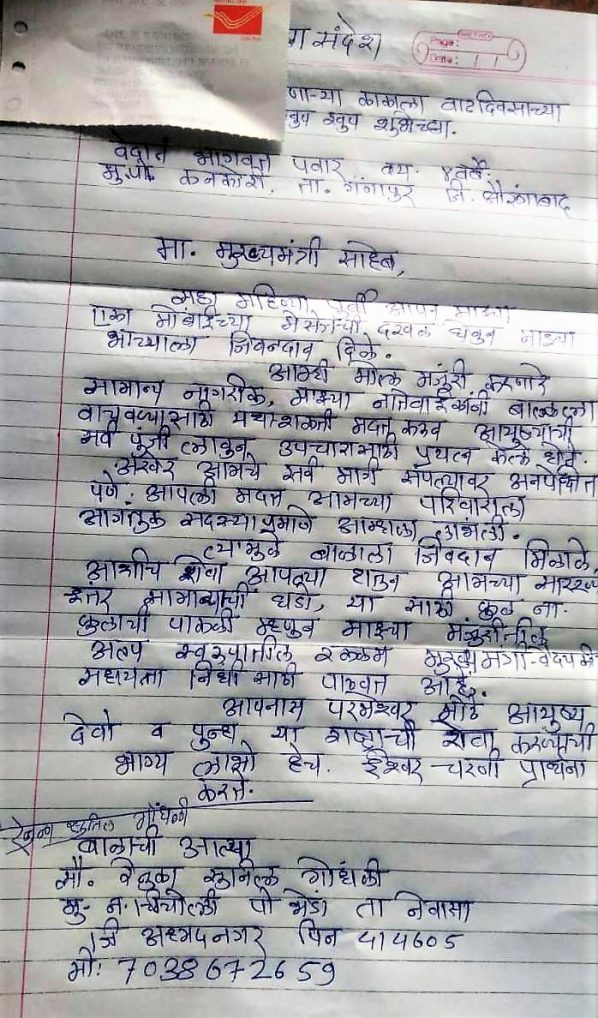 संदेश
Page:
Date:
णाऱ्या काकाला वाढदिवसाच्या
खुप शुभेच्छा.
वेदांत भागवत पवार वय. ४ वर्षे.
मु.पो. कनकोरी, ता. गंगापुर जि. औरंगाबाद
मा. मुख्यमंत्री साहेब,
सहा महिन्या पुर्वी आपन माझ्या
एका मोबाईच्या मेसेजची दखल घेवुन माझ्या
भाच्याला जिवनदान दिले.
आम्ही मोल मजुरी करणारे
सामान्य नागरीक, माझ्या नातेवाईकांनी बाळाला
वाचवण्यासाठी यथाशक्ती मदत करुन आयुष्याची
सर्व पुंजी लावुन उपचारासाठी प्रयत्न केले होते.
अखेर आमचे सर्व मार्ग संपल्यावर अनपेक्षित
पणे आपली मदत आमच्या परिवाराला
आगंतुक सदस्या प्रमाणे आम्हाला लाभली.
त्यामुळे बाळाला जिवदान मिळाले,
आशीच सेवा आपल्या हातुन आमच्या सारख्या
इतर सामान्याची घडो, या साठी फुल ना.
फुलाची पाकळी म्हणुन माझ्या मंजुरीतील
अल्प स्वरुपातील रक्कम मुख्यमंत्री-वैद्यकीय
सहाय्यता निधी साठी पाठवत आहे.
आपनास परमेश्वर आयुष्य
देवो व पुन्हा या राष्ट्राची सेवा करण्याची
भाग्य लाभो हेच ईश्वर चरनी प्राथना
करते.
सुनिल गोंधळी
बाळाची आत्या
सौ. रेणुका सुनिल गोंधळी
मु. न. चिंचोली पो भेंडा ता नेवासा
जि अहमदनगर पिन 414605
मो: 7038672659